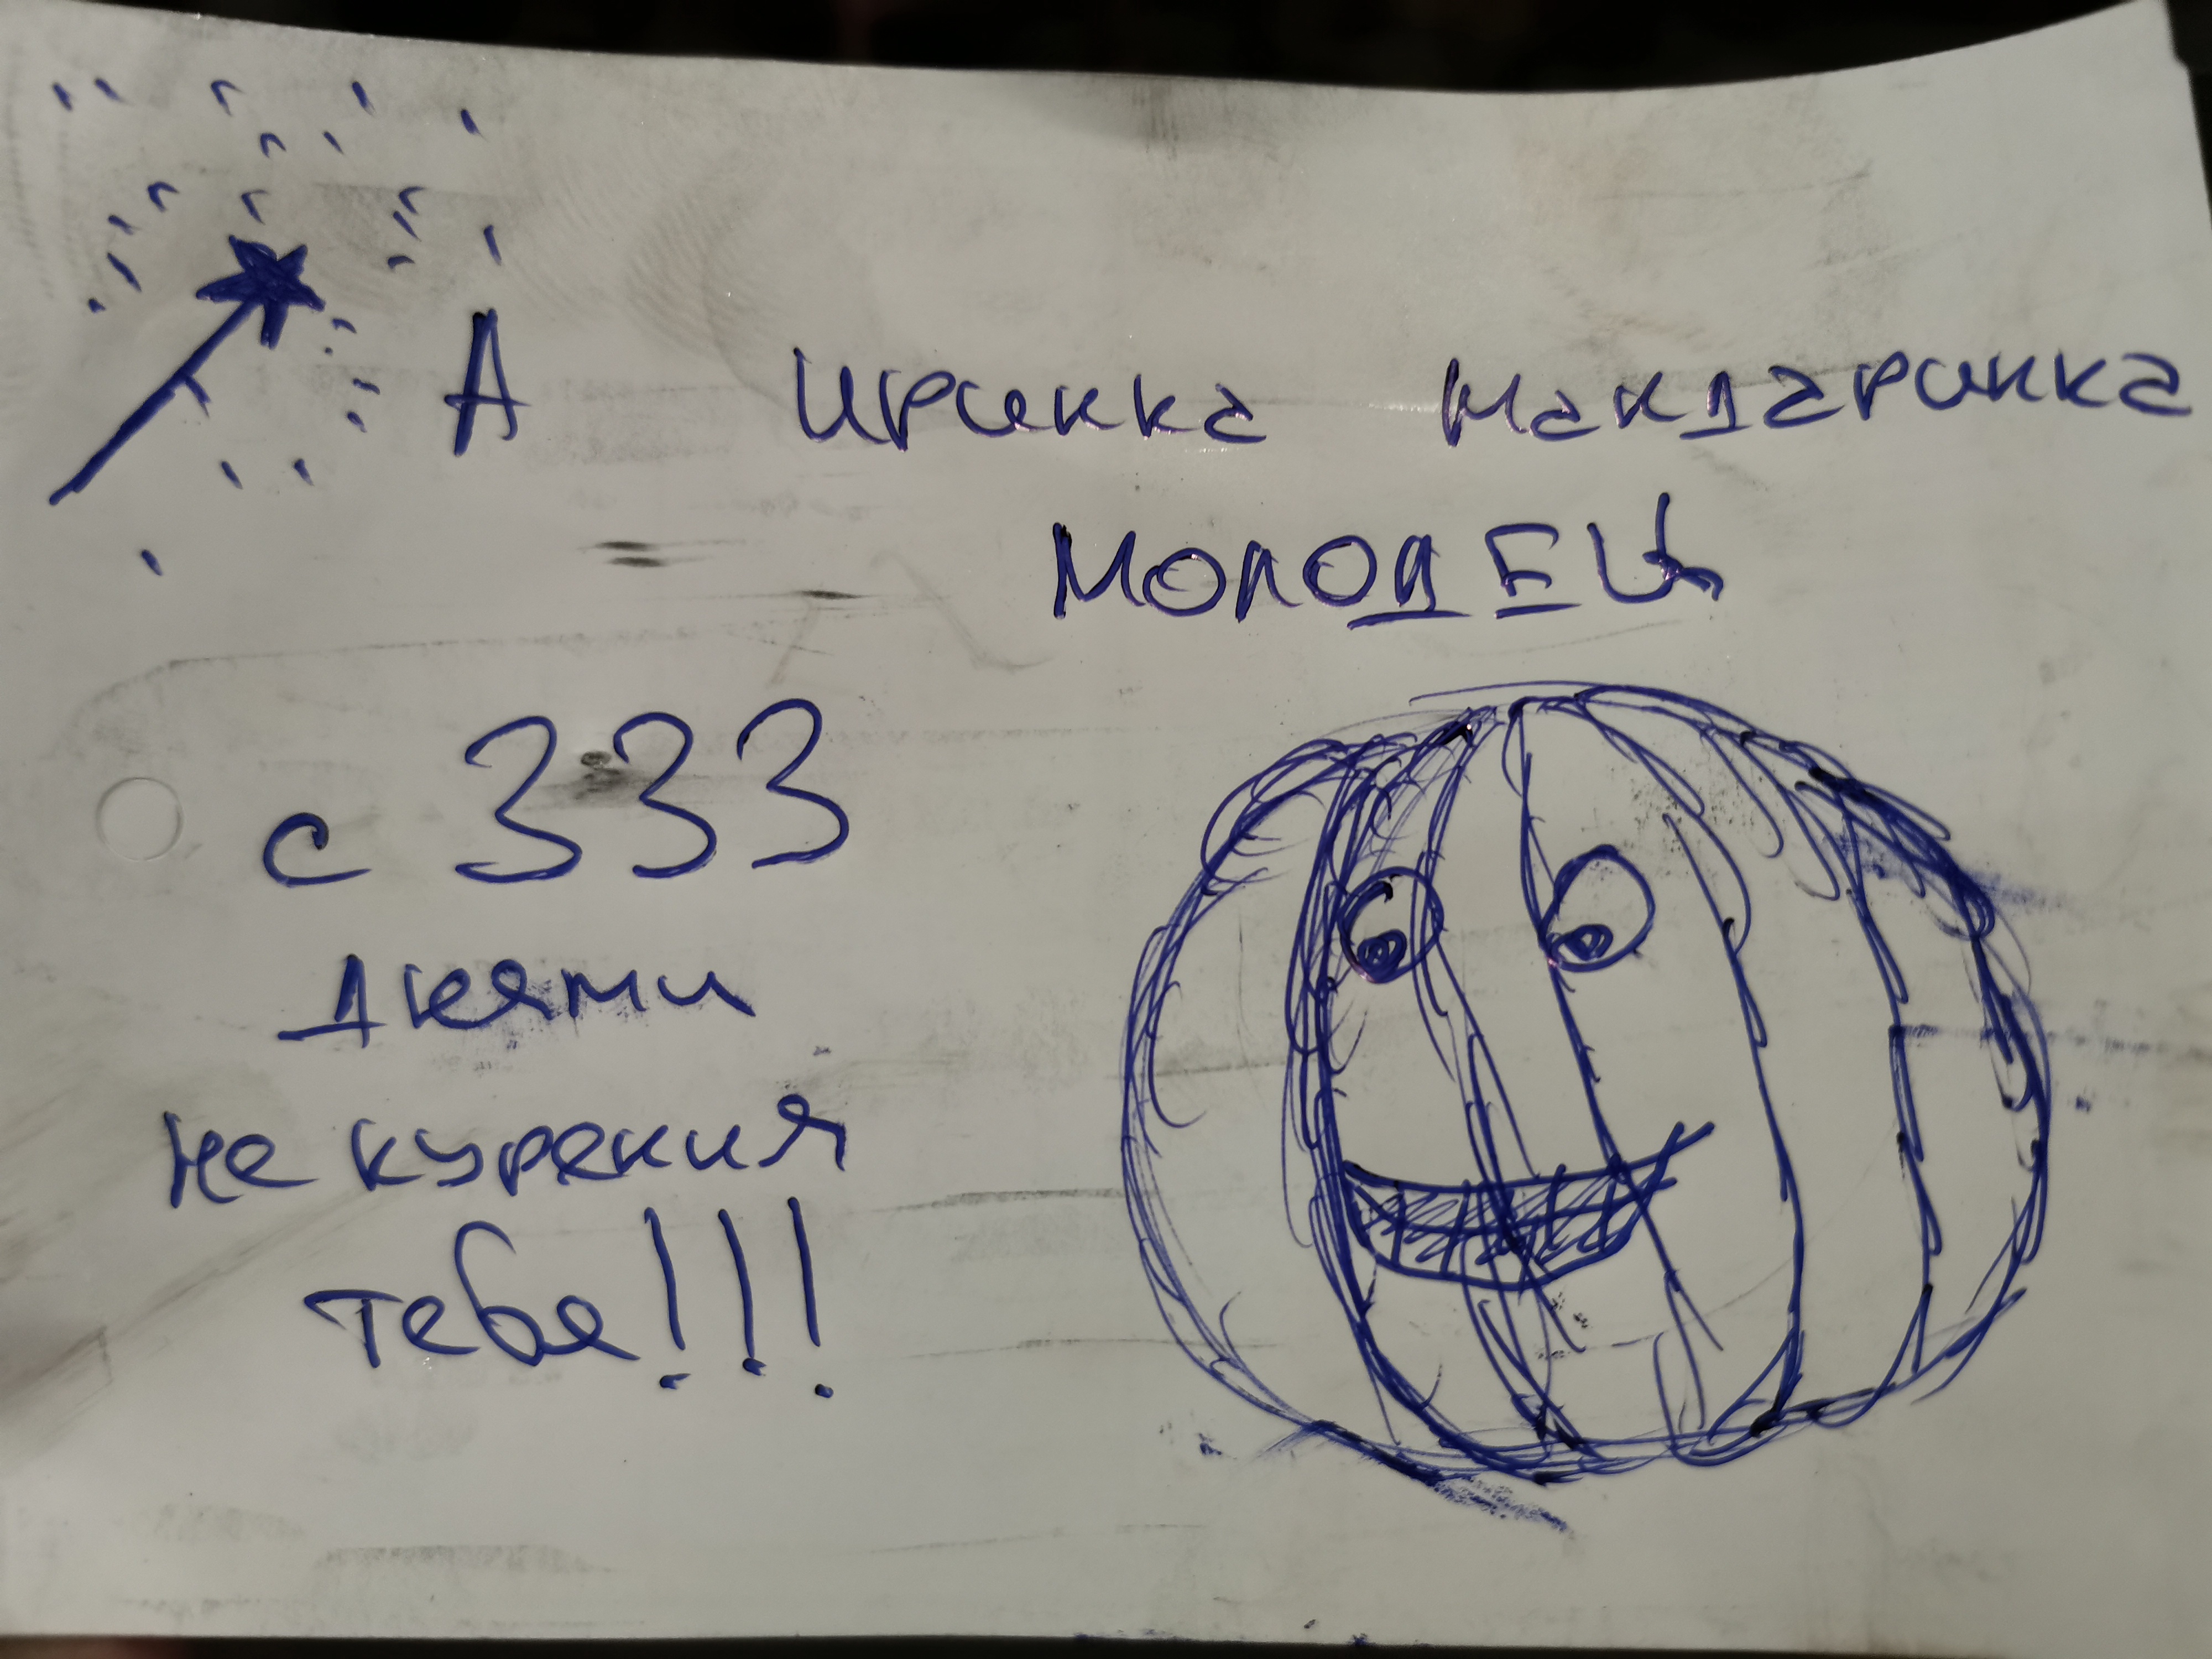 А Иринка мандаринка
МОЛОДЕЦ
с 333
днями
не курения
тебя!!!